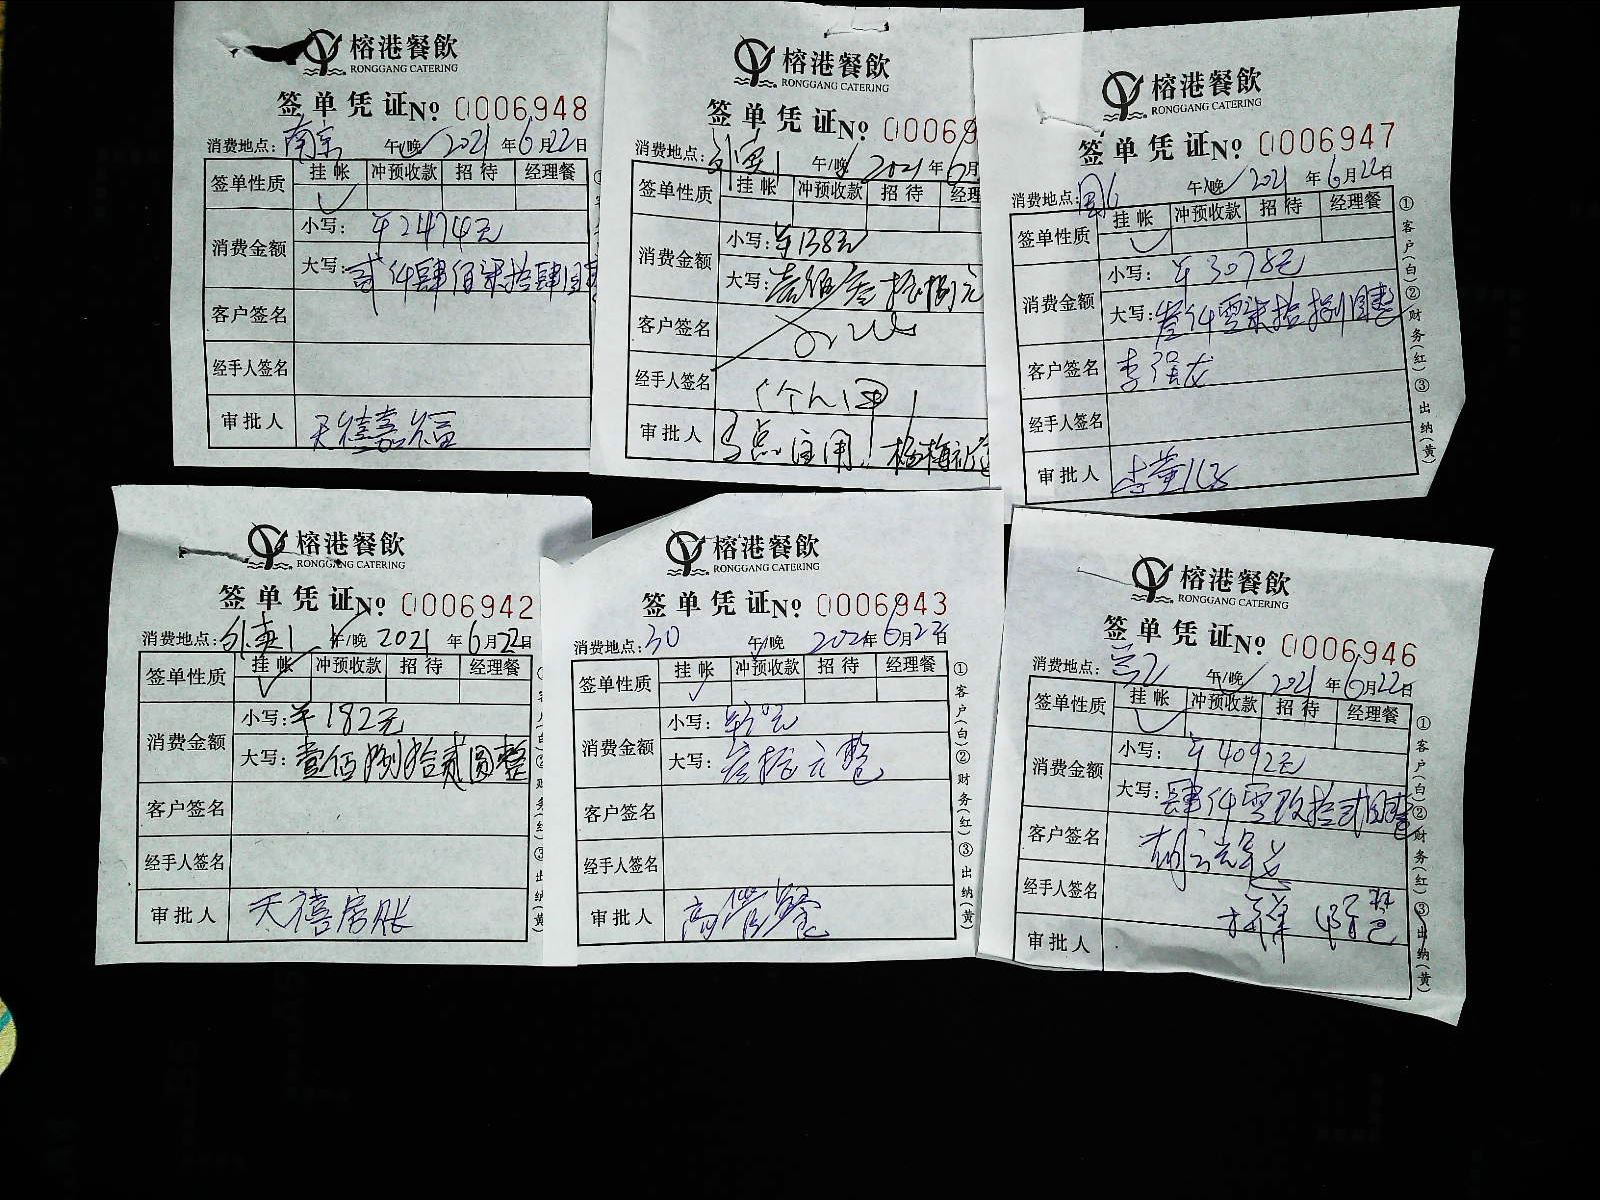 榕港餐飲
RONGGANG CATERING
签单凭证 No 0006948
消费地点：南京 午/晚 2021年6月22日
签单性质 挂帐 冲预收款 招待 经理餐
消费金额
小写：¥2474元
大写：贰仟肆佰柒拾肆圆整
客户签名
经手人签名
审批人 天禧嘉福
榕港餐飲
RONGGANG CATERING
签单凭证 No 00069
消费地点：外卖1 午/晚 2021年6月
签单性质 挂帐 冲预收款 招待 经理
消费金额
小写：¥138元
大写：叁佰叁拾捌元
客户签名
经手人签名 (个人)
审批人
榕港餐飲
RONGGANG CATERING
签单凭证 No 0006947
消费地点：国 午/晚 2021年6月22日
签单性质 挂帐 冲预收款 招待 经理餐
消费金额
小写：¥3078元
大写：叁仟零柒拾捌圆整
客户签名 李强龙
经手人签名
审批人 李董
①客户(白)②财务(红)③出纳(黄)
榕港餐飲
RONGGANG CATERING
签单凭证 No 0006942
消费地点：外卖1 午/晚 2021年6月22日
签单性质 挂帐 冲预收款 招待 经理餐
消费金额
小写：¥182元
大写：壹佰捌拾贰圆整
客户签名
经手人签名
审批人 天禧房账
榕港餐飲
RONGGANG CATERING
签单凭证 No 0006943
消费地点：30 午/晚 2021年6月22日
签单性质 挂帐 冲预收款 招待 经理餐
消费金额
小写：¥30元
大写：叁拾元整
客户签名
经手人签名
审批人 高管餐
①客户(白)②财务(红)③出纳(黄)
榕港餐飲
RONGGANG CATERING
签单凭证 No 0006946
消费地点： 午/晚 2021年6月22日
签单性质 挂帐 冲预收款 招待 经理餐
消费金额
小写：¥4092元
大写：肆仟零玖拾贰圆整
客户签名
经手人签名
审批人
①客户(白)②财务(红)③出纳(黄)